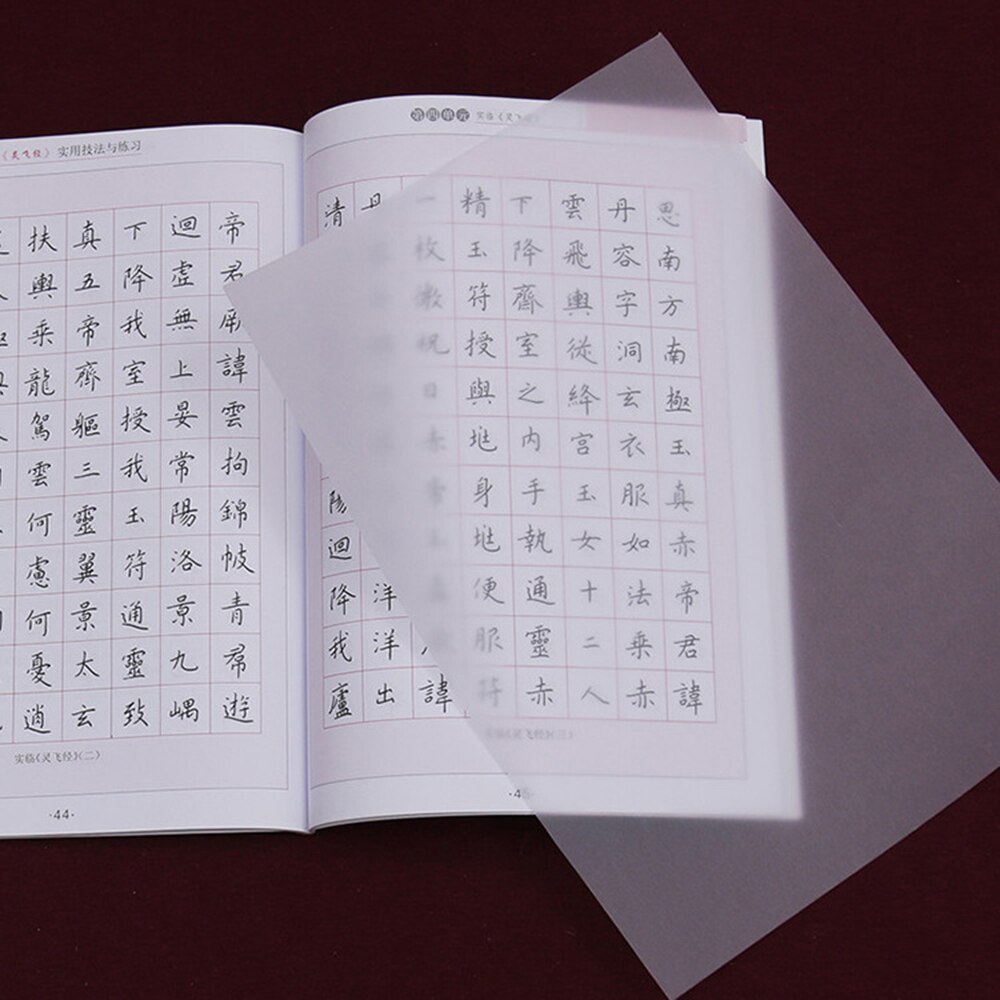 《灵飞经》 实用技法与练习
帝君厥諱雲拘錦帔青帬遊
迴虛無上晏常陽洛景九嵎
下降我室授我玉符通靈致
真五帝齊軀三靈翼景太玄
扶輿乘龍駕雲何慮何憂逍
实临《灵飞经》(二)
·44·
第四单元 实临《灵飞
思南方南極玉真赤帝君諱
丹容字洞玄衣服如法乘赤
雲飛輿從絳宮玉女十二人
下降齊室之内手執通靈赤
精玉符授與垗身垗便服符
一枚微祝曰諱
丹洋洋出
清陽迴降我廬
实临《灵飞经》(三)